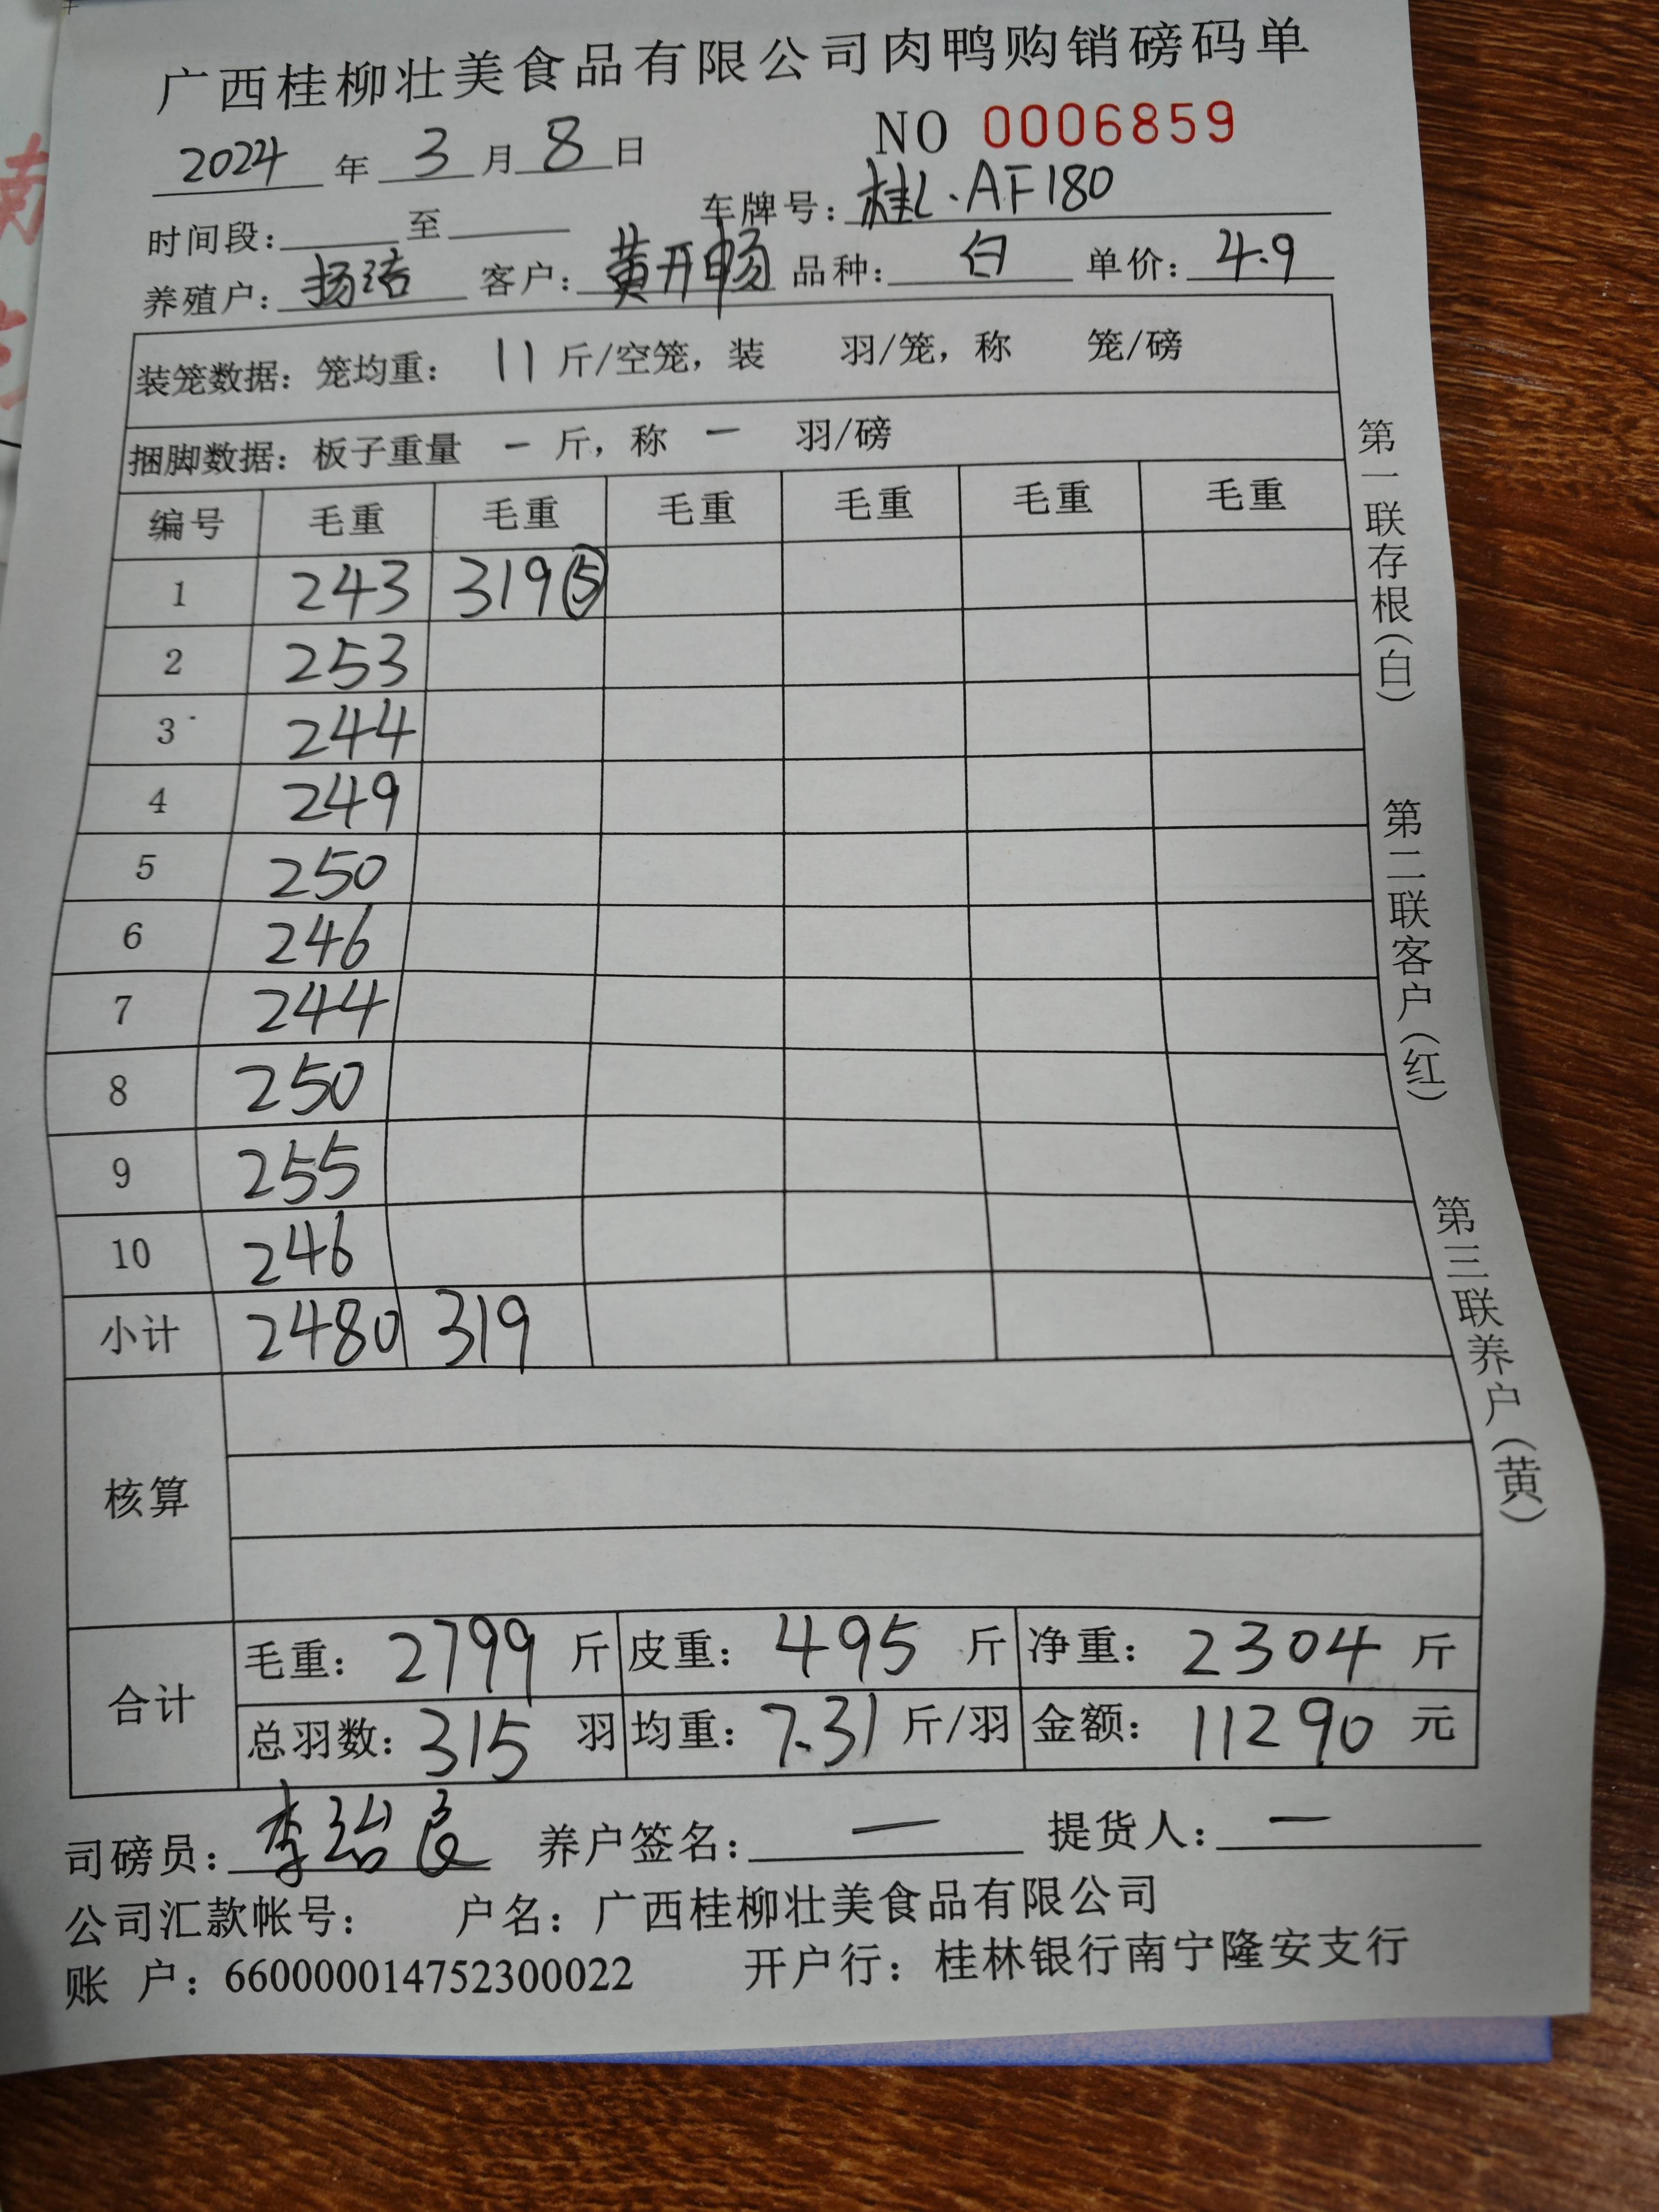 广西桂柳壮美食品有限公司肉鸭购销磅码单
NO 0006859
2024 年 3 月 8 日
时间段: 至 车牌号: 桂L·AF180
养殖户: 杨洁 客户: 黄开畅 品种: 白 单价: 4.9
装笼数据: 笼均重: 11 斤/空笼, 装 羽/笼, 称 笼/磅
捆脚数据: 板子重量 一 斤, 称 一 羽/磅
编号 毛重 毛重 毛重 毛重 毛重 毛重
1 243 319⑤
2 253
3 244
4 249
5 250
6 246
7 244
8 250
9 255
10 246
小计 2480 319
核算
合计
毛重: 2799 斤 皮重: 495 斤 净重: 2304 斤
总羽数: 315 羽 均重: 7.31 斤/羽 金额: 11290 元
司磅员: 李治良 养户签名: 一 提货人: 一
公司汇款帐号: 户名: 广西桂柳壮美食品有限公司
账 户: 660000014752300022 开户行: 桂林银行南宁隆安支行
第一联存根(白)
第二联客户(红)
第三联养户(黄)